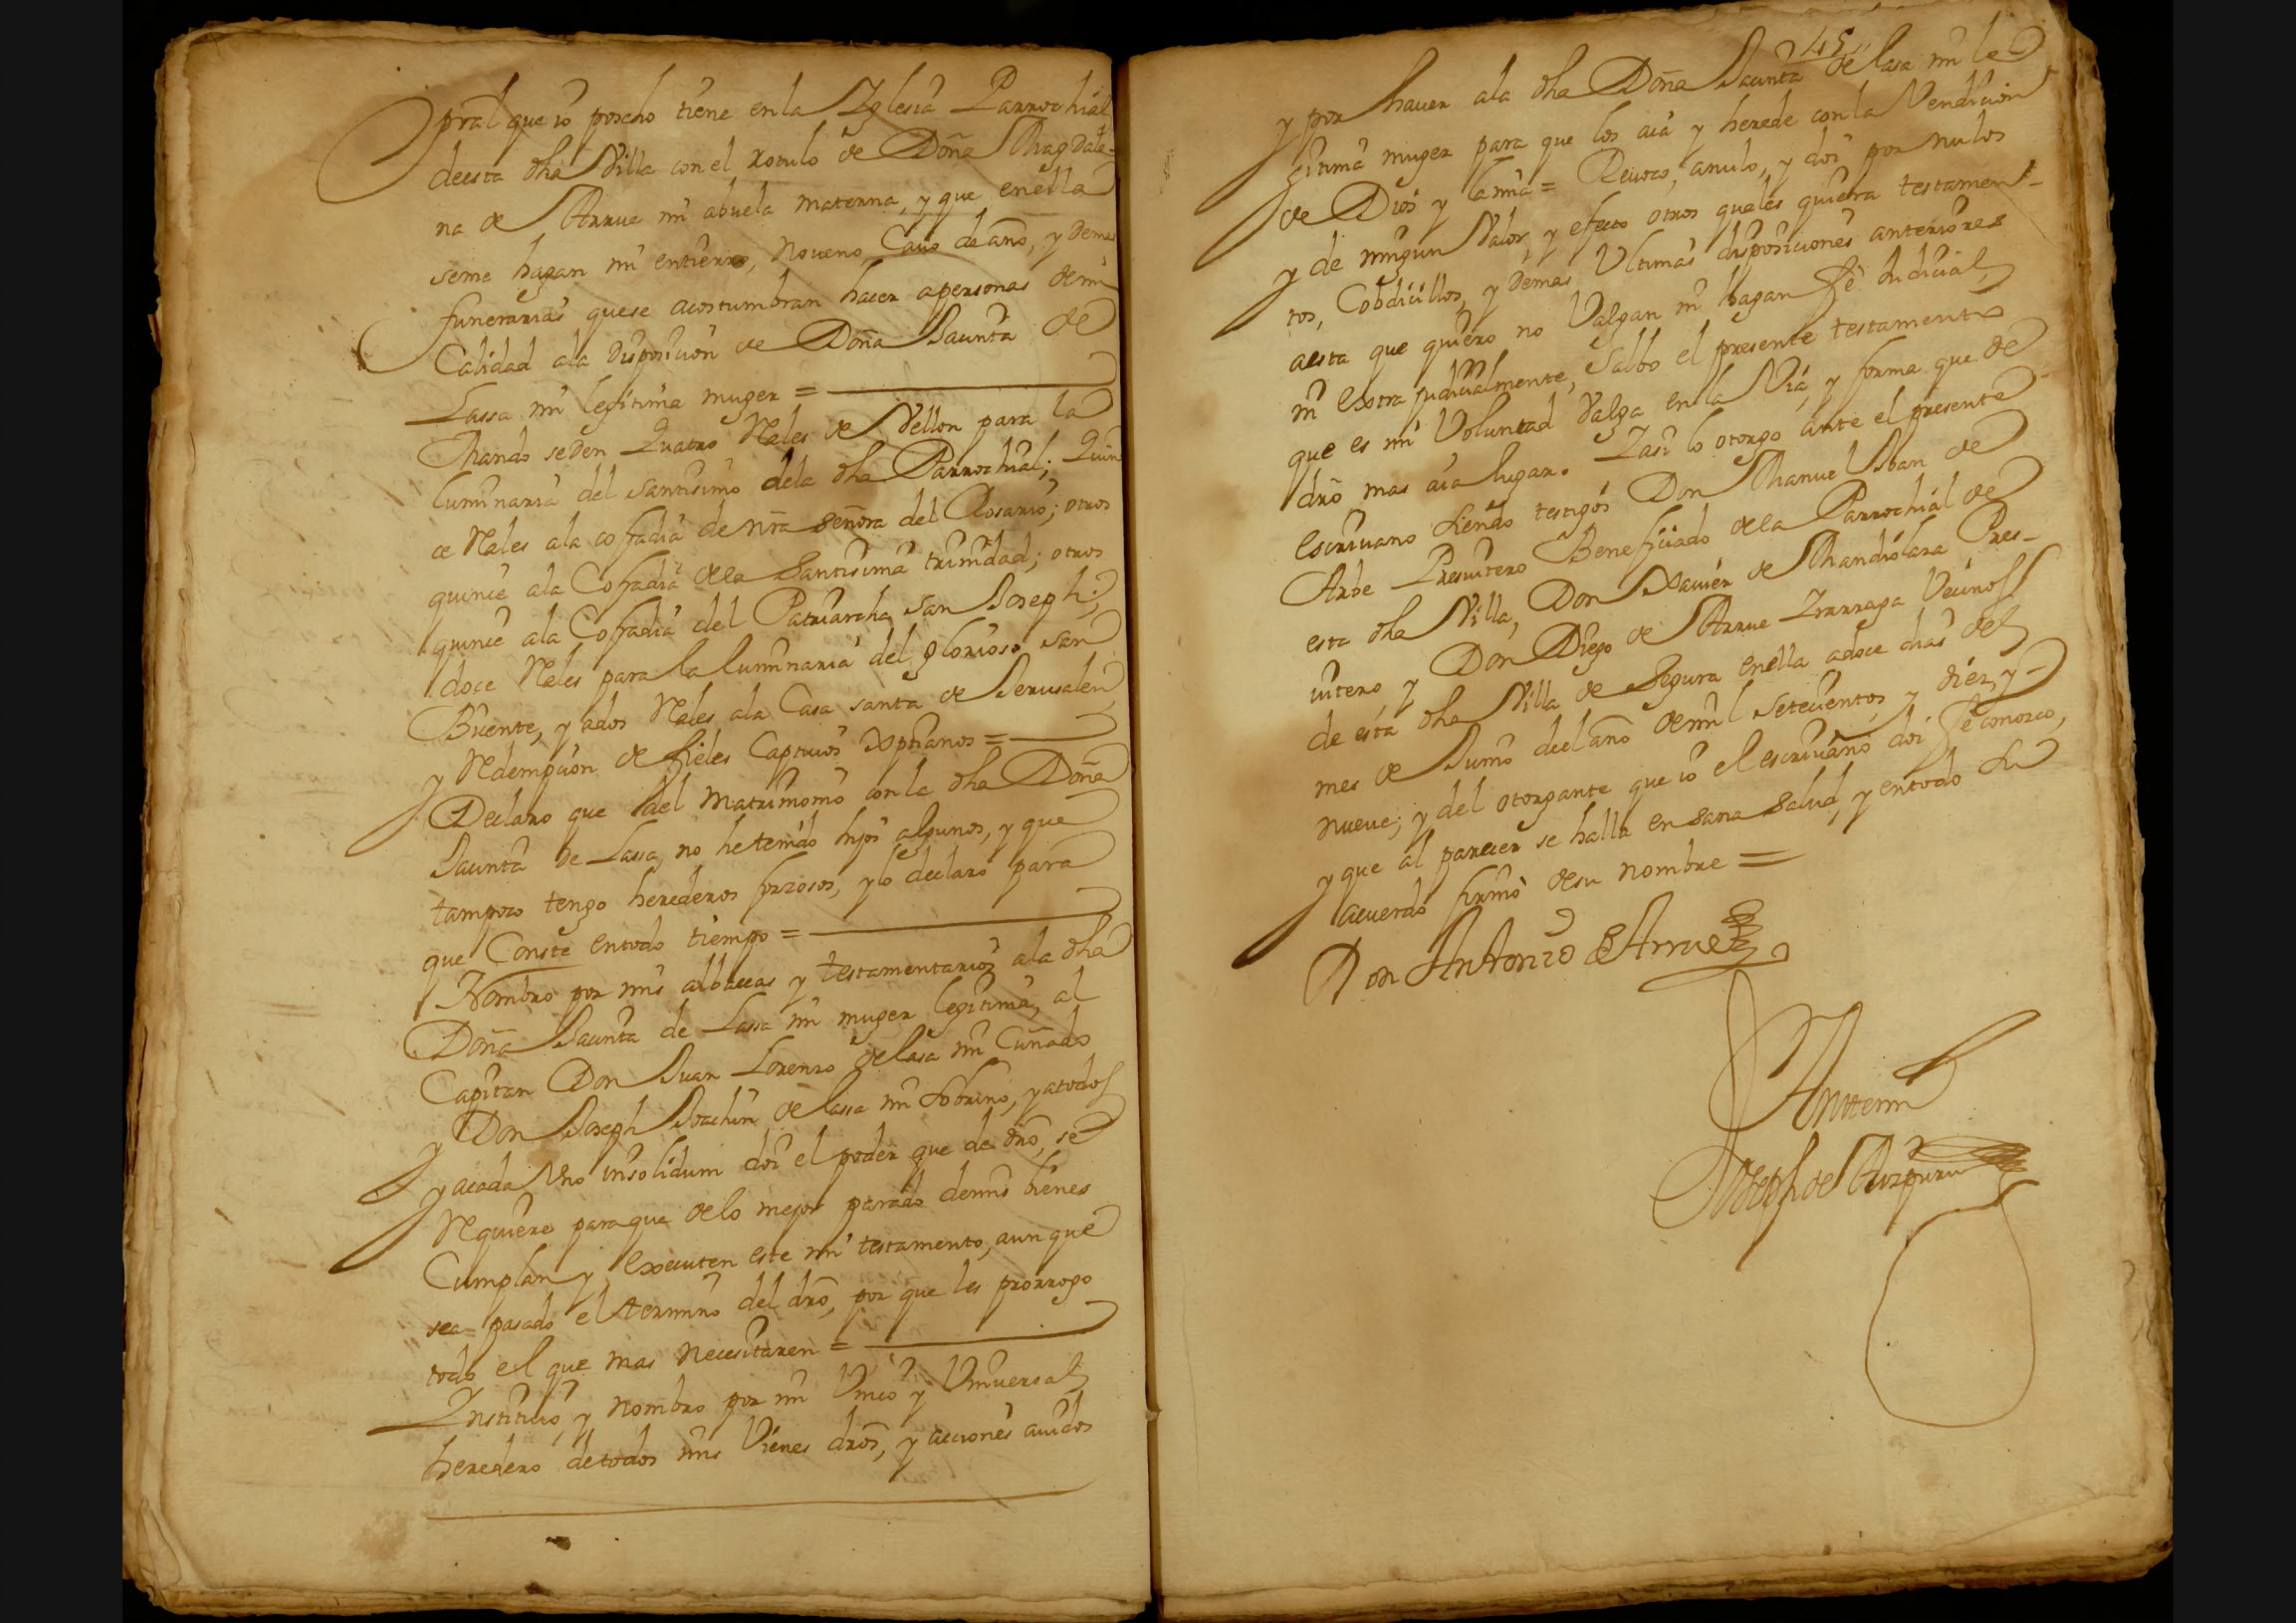 pral que io poseho tiene en la Iglesia Parrochial
de esta dha Villa con el rotulo de Doña Magdale-
na de Arrue mi abuela materna, y que en ella
se me hagan mi entierro, noueno, Cauo de año, y demas
funerarias que se acostumbran hacer a personas de mi
Calidad a la disposicion de Doña Jacinta de
Lassa mi legitima muger =
Mando se den Quatro Rales de Vellon para la
luminaria del santisimo de la dha Parrochial; Quin
ce Rales a la cofadia de nra señora del Rosario; otros
quince a la Cofadia de la Santisima trinidad; otros
quince a la Cofadia del Patriarcha san Joseph;
doce Rales para la luminaria del glorioso san
Vicente, y a dos Rales a la Casa santa de Jerusalen,
y Redempcion de fieles Captiuos xptianos =
Declaro que del matrimonio con la dha Doña
Jacinta de Lassa, no he tenido hijos algunos, y que
tampoco tengo herederos forzosos, y lo declaro para
que Conste en todo tiempo =
Nombro por mis albaceas y testamentarios a la dha
Doña Jacinta de Lassa mi muger legitima, al
Capitan Don Juan Lorenzo de lasa mi Cuñado
y Don Joseph Joachin de lassa mi sobrino, y a todos
y a cada Vno insolidum doi el poder que de dro, se
Requiere para que de lo mejor parado de mis bienes
Cumplan y executen este mi testamento, aun que
sea pasado el termino del dro, por que les prorrogo
todo el que mas necesitaren =
Instituio, y nombro por mi Vnico y Vniuersal
heredero de todos mis Vienes dros, y acciones auidos
45
y por hauer a la dha Doña Jacinta de lasa mi le
gitima muger para que los aia y herede con la Vendicion
de Dios y la mia = Reuoco, anulo, y doi por nulos
y de ningun Valor, y efecto otros quales quiera testamen-
tos, Cobdicillos, y demas Vltimas disposiciones anteriores
a esta que quiero no Valgan ni hagan fe Judicial,
ni extra judicialmente, Salbo el presente testamento
que es mi Voluntad Valga en la Via, y forma que de
dro mas aia lugar. I asi lo otorgo ante el presente
escriuano siendo testigos Don Manuel Jban de
Arbe Presuitero Beneficiado de la Parrochial de
esta dha Villa, Don Xauier de Mandiolara Pres-
uitero, y Don Diego de Arrue Irarraga Vecinos
de esta dha Villa de Segura en ella a doce dias del
mes de Junio de el año de mil setecientos, y diez, y
nueue; y del otorgante que io el escriuano doi fe conozco,
y que al parecer se halla en sana salud, y en todo su
acuerdo firmo de su nombre =
Don Antonio de Arrue
Ante mi
Joseph de Aizpuru